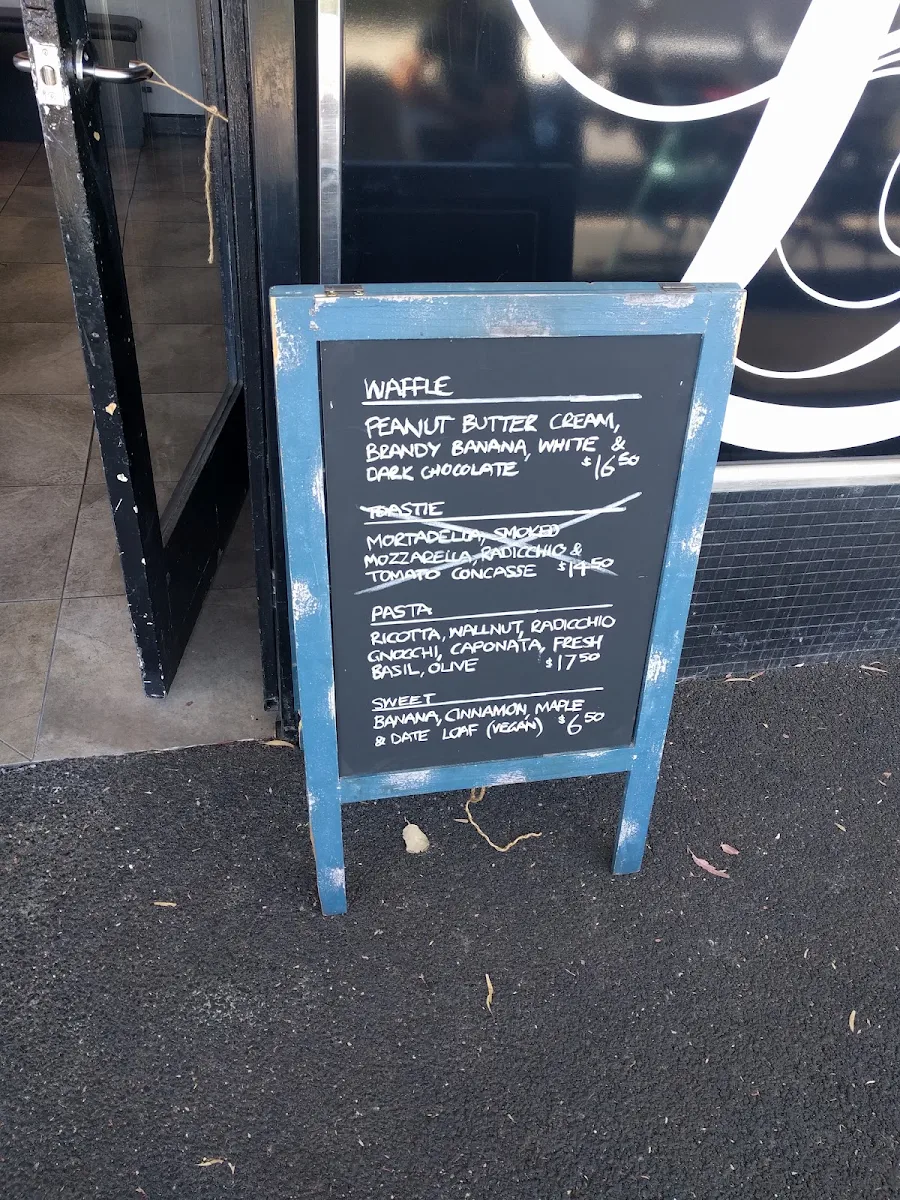 WAFFLE
PEANUT BUTTER CREAM,
BRANDY BANANA, WHITE &
DARK CHOCOLATE $16.50
TOASTIE
MORTADELLA, SMOKED
MOZZARELLA, RADICCHIO &
TOMATO CONCASSE $14.50
PASTA
RICOTTA, WALLNUT, RADICCHIO
GNOCCHI, CAPONATA, FRESH
BASIL, OLIVE $17.50
SWEET
BANANA, CINNAMON, MAPLE
& DATE LOAF (VEGAN) $6.50